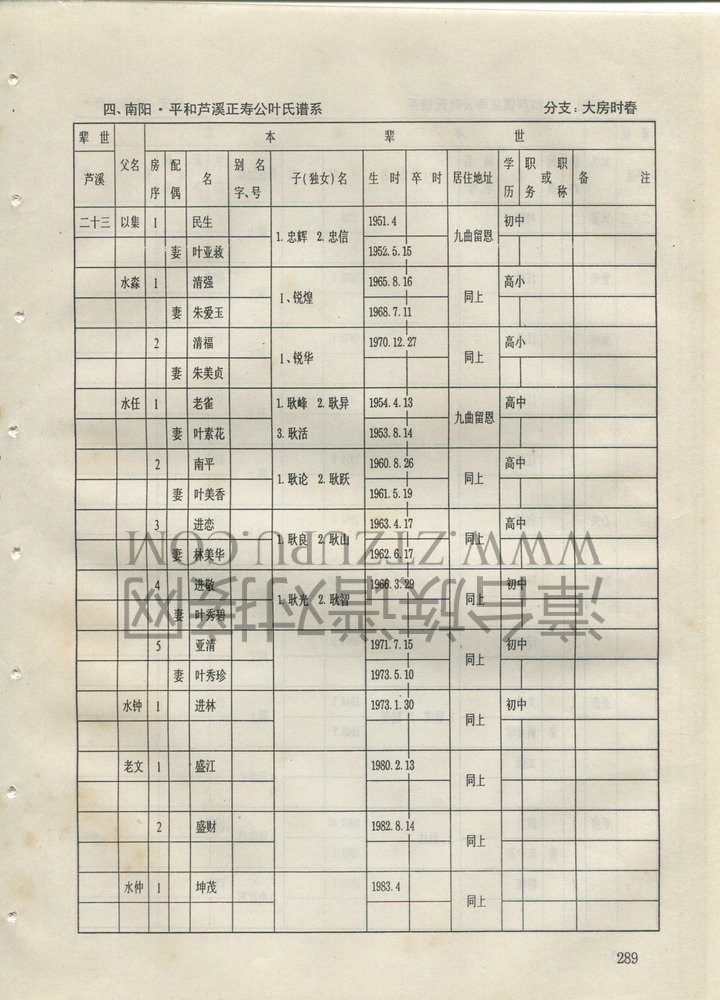 四、南阳·平和芦溪正寿公叶氏谱系 分支：大房时春
辈世 本 辈 世
芦溪 父名 房序 配偶 名 别名字、号 子(独女)名 生时 卒时 居住地址 学历 职务或职称 备注
二十三 以集 1 民生 1.忠辉 2.忠信 1951.4 九曲留恩 初中
妻 叶亚救 1952.5.15
水淼 1 清强 1、锐煌 1965.8.16 同上 高小
妻 朱爱玉 1968.7.11
2 清福 1、锐华 1970.12.27 同上 高小
妻 朱美贞
水任 1 老雀 1.耿峰 2.耿异 1954.4.13 九曲留恩 高中
妻 叶素花 3.耿活 1953.8.14
2 南平 1.耿论 2.耿跃 1960.8.26 同上 高中
妻 叶美香 1961.5.19
3 进恋 1.耿良 2.耿山 1963.4.17 同上 高中
妻 林美华 1962.6.17
4 进敬 1.耿光 2.耿智 1966.3.29 同上 初中
妻 叶秀碧
5 亚清 1971.7.15 同上 初中
妻 叶秀珍 1973.5.10
水钟 1 进林 1973.1.30 同上 初中
老文 1 盛江 1980.2.13 同上
2 盛财 1982.8.14 同上
水仲 1 坤茂 1983.4 同上
289
WWW.ZTZUPU.COM
漳台族谱对接网